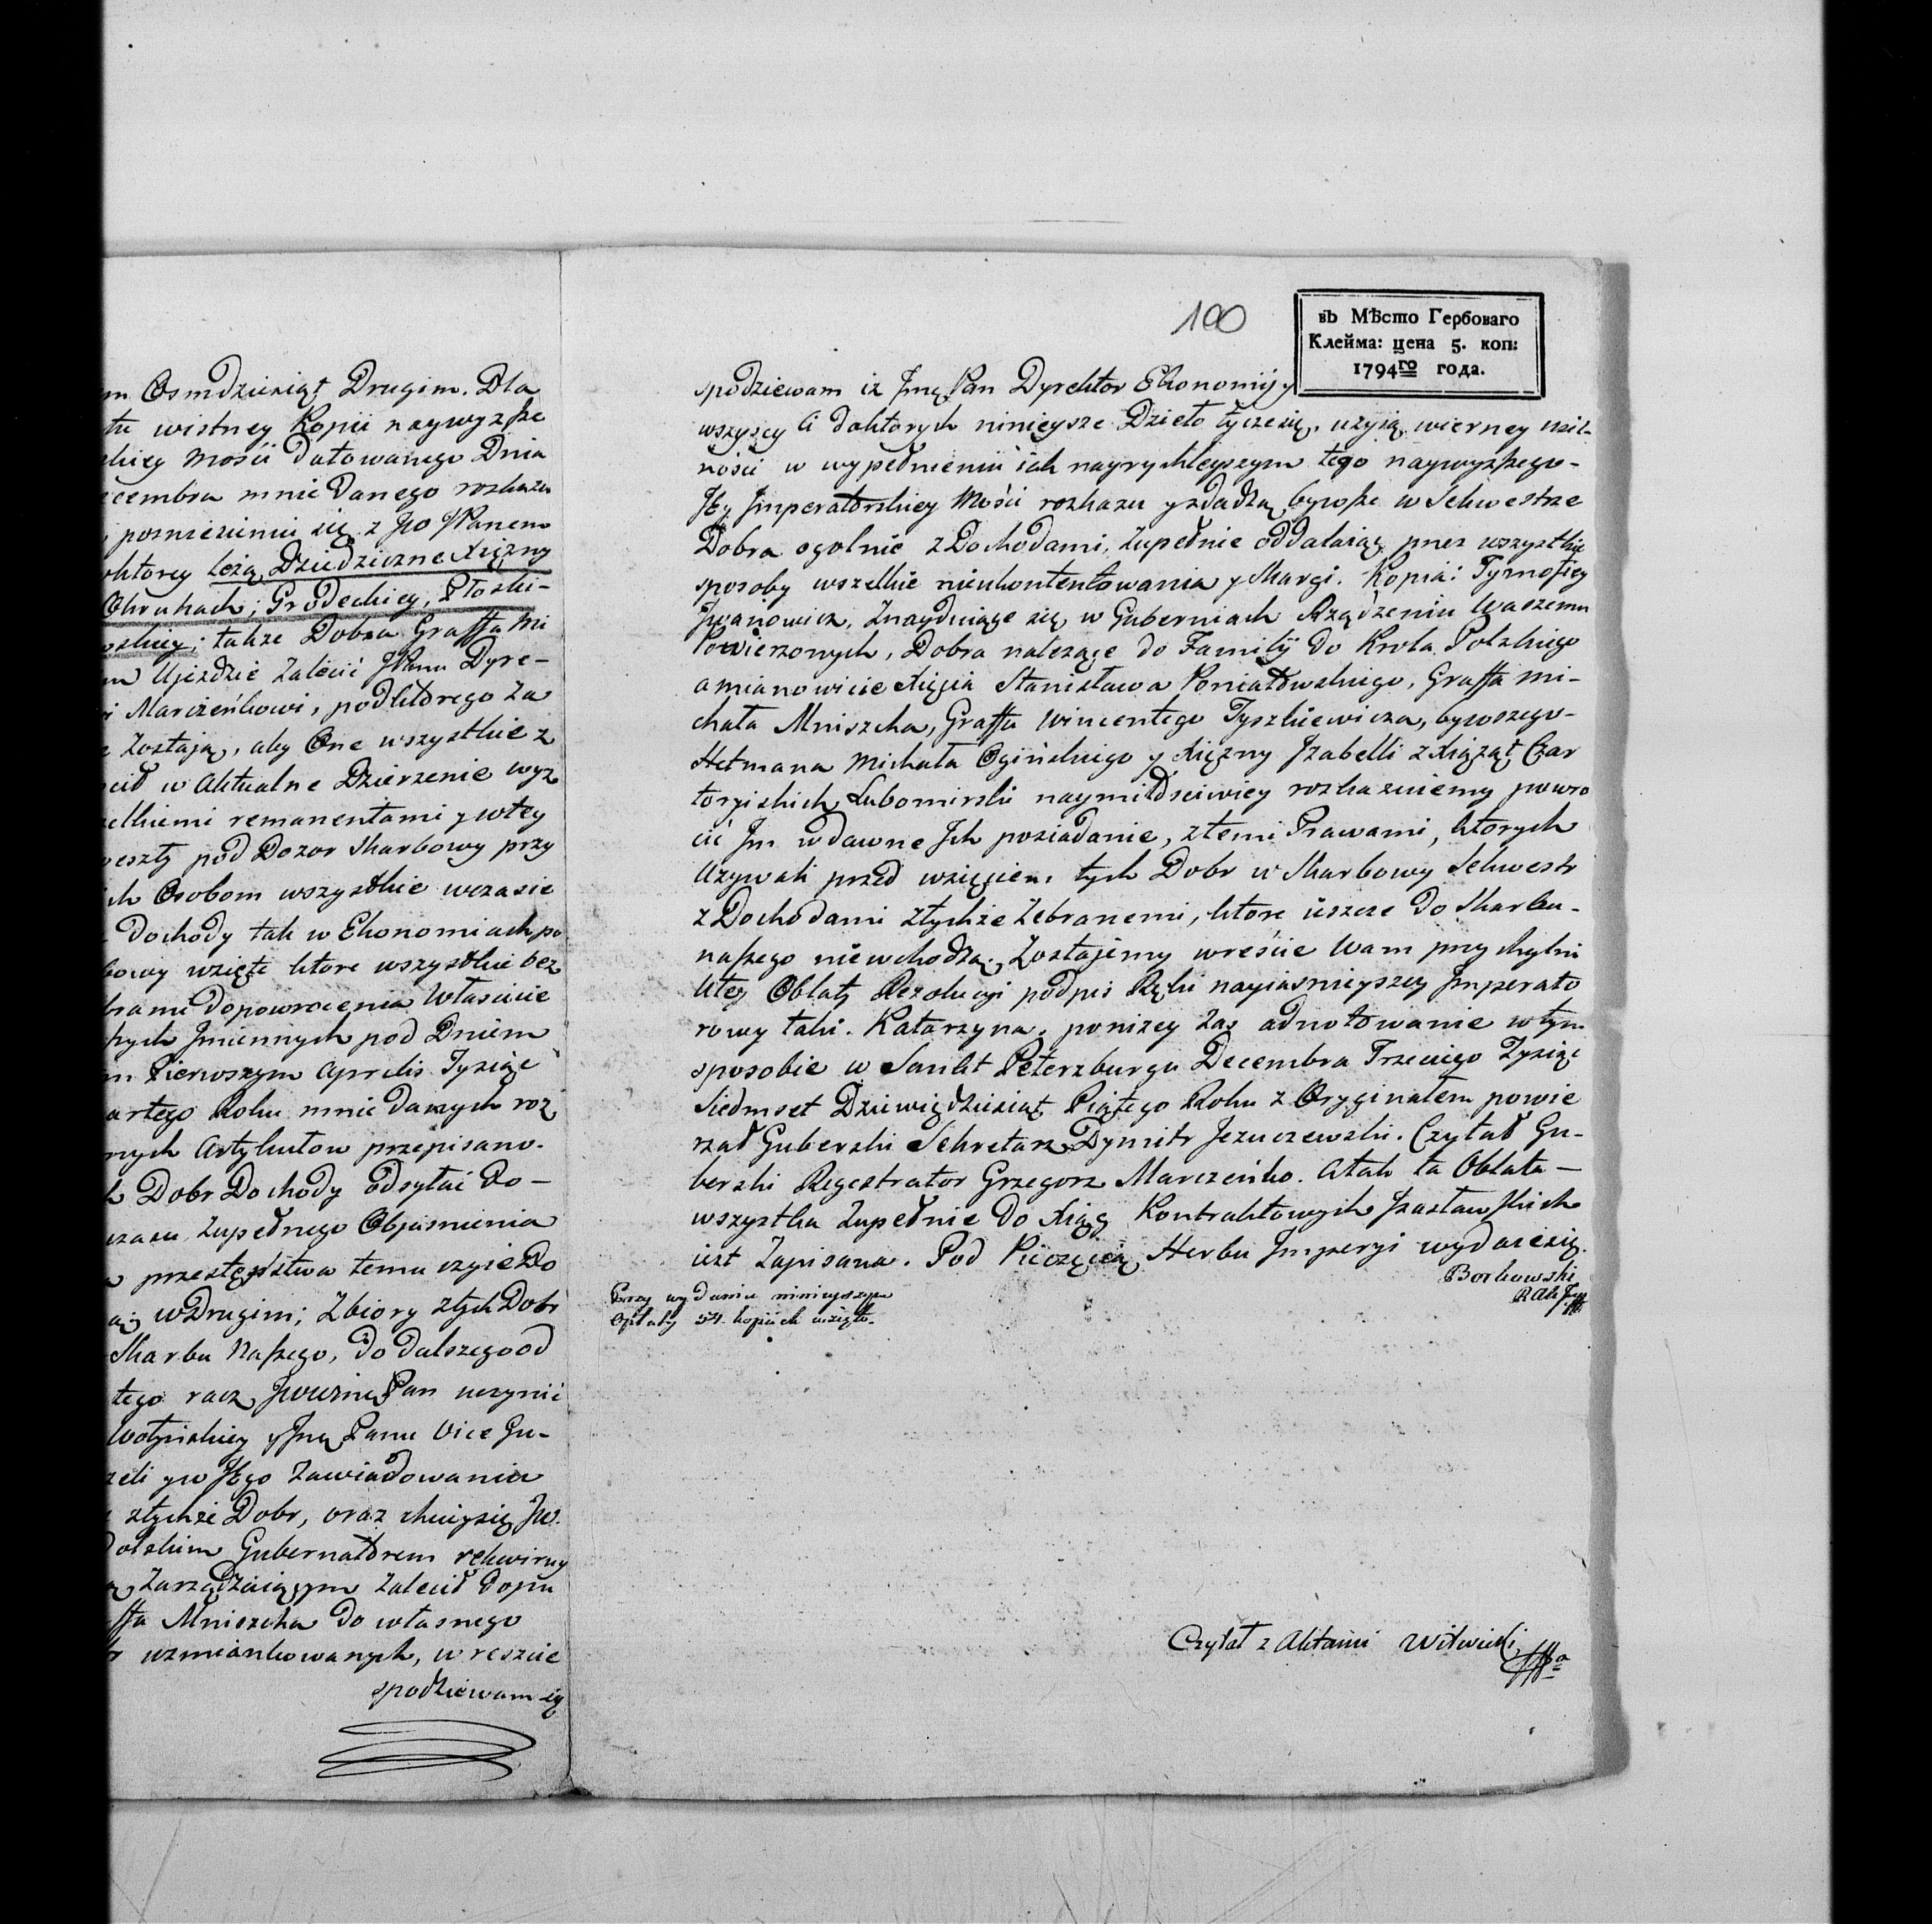 m Osmdziesiąt Drugim. Dla
tu wistney Kopii naywyższe
skiey Mości datowanego Dnia
cembra mnie Danego rozkazu
pomieszeniu się z Jo Panem
którey leżą Dziedziczne Xiężny
Okrukach; Grodeckiey, Płoski-
oskiey; także Dobra Graffa Mi
m Ujezdzie zalecić JPanu Dyre-
i Marczeńkowi, podktorego za
zostają, aby One wszystkie z
cił w Aktualne Dzierzenie wyz
elkiemi remanentami y wtey
weszły pod Dozor Skarbowy przy
ch Osobom wszystkie wczasie
Dochody tak w Ekonomiach po
bowy wzięte które wszystkie bez
brami dopowrocenia Właścicie
szych Jmiennych pod Dniem
m Pierwszym Aprilis Tysiąc
artego Roku mnie Danych roz
nych Artykułow przepisano.
h Dobr Dochody odsyłać Do-
czasu zupełnego Objasnienia
w przestępstwa temu czyie Do
ą w Drugim; Zbiory ztych Dobr
Skarbu Naszego, do dalszego od
tego racz Jwieżmż Pan uczynić
Wołyńskiey y Jmę Panu Vice Gu-
zeli y w Jego zawiadowaniu
ztychże Dobr, oraz chciey się Jw.
Podolskim Gubernatorem rekwiruy
ą zarządzaiącym zalecił dopu
ffa Mniszcha do własnego
r wzmiankowanych, wreszcie
spodziewam się
100
въ Мѣсто Гербоваго
Клейма: цена 5. коп:
1794го года.
spodziewam iż Jmę Pan Dyrektor Ekonomij y
wszyscy Ci doktorych ninieysze Dzieło tycze się, użyią wierney usil-
ności w wypełnieniu iak nayrychleyszym tego naywyższego-
Jey Jmperatorskiey Mości rozkazu y zdadzą bywsze w Sekwestrze
Dobra ogolnie z Dochodami, zupełnie oddalaiąc przez wszystkie
sposoby wszelkie nieukontentowania y Skargi. Kopia: Tymofiey
Jwanowicz, Znayduiące się w Guberniach Rządzeniu Waszemu
Powierzonych, Dobra należące do Familij do Krola Polskiego
a mianowicie Xięcia Stanisława Poniatowskiego, Graffa Mi-
chała Mniszcha, Graffa Wincentego Tyszkiewicza, bywszego-
Hetmana Michała Ogińskiego y Xiężny Jzabelli z Xiążąt Czar
toryiskich Lubomirski naymiłościwiey rozkazuiemy powro
cić Jm wdawne Jch posiadanie, z temi Prawami, ktorych
Używali przed wzięciem tych Dobr w Skarbowy Sekwestr
z Dochodami ztychże zebranemi, ktore ieszcze do Skarbu-
naszego niewchodzą. Zostajemy wreście Wam przychylni
Utey Oblaty Rezolucyi podpis Ręki nayiasnieyszey Jmperato
rowy taki. Katarzyna. poniżey zaś adnotowanie w tym
sposobie w Sankt Peterzburgu Decembra Trzeciego Tysiąc
Siedmset Dziewiędziesiąt Piątego Roku z Oryginałem powie
rzał Guberski Sekretarz Dymitr Jezuczewski. Czytał Gu-
berski Regestrator Grzegorz Marczeńko. A tak ta Oblata-
wszystka zupełnie do Xiąg Kontraktowych Jzasławskich
iest Zapisana. Pod Pieczęcią Herbu Jmperyi wydaie się.
Borkowski
Przy wydaniu ninieyszym
opłaty 54. kopiiek wzięto.
Czytał z Aktami Witwicki